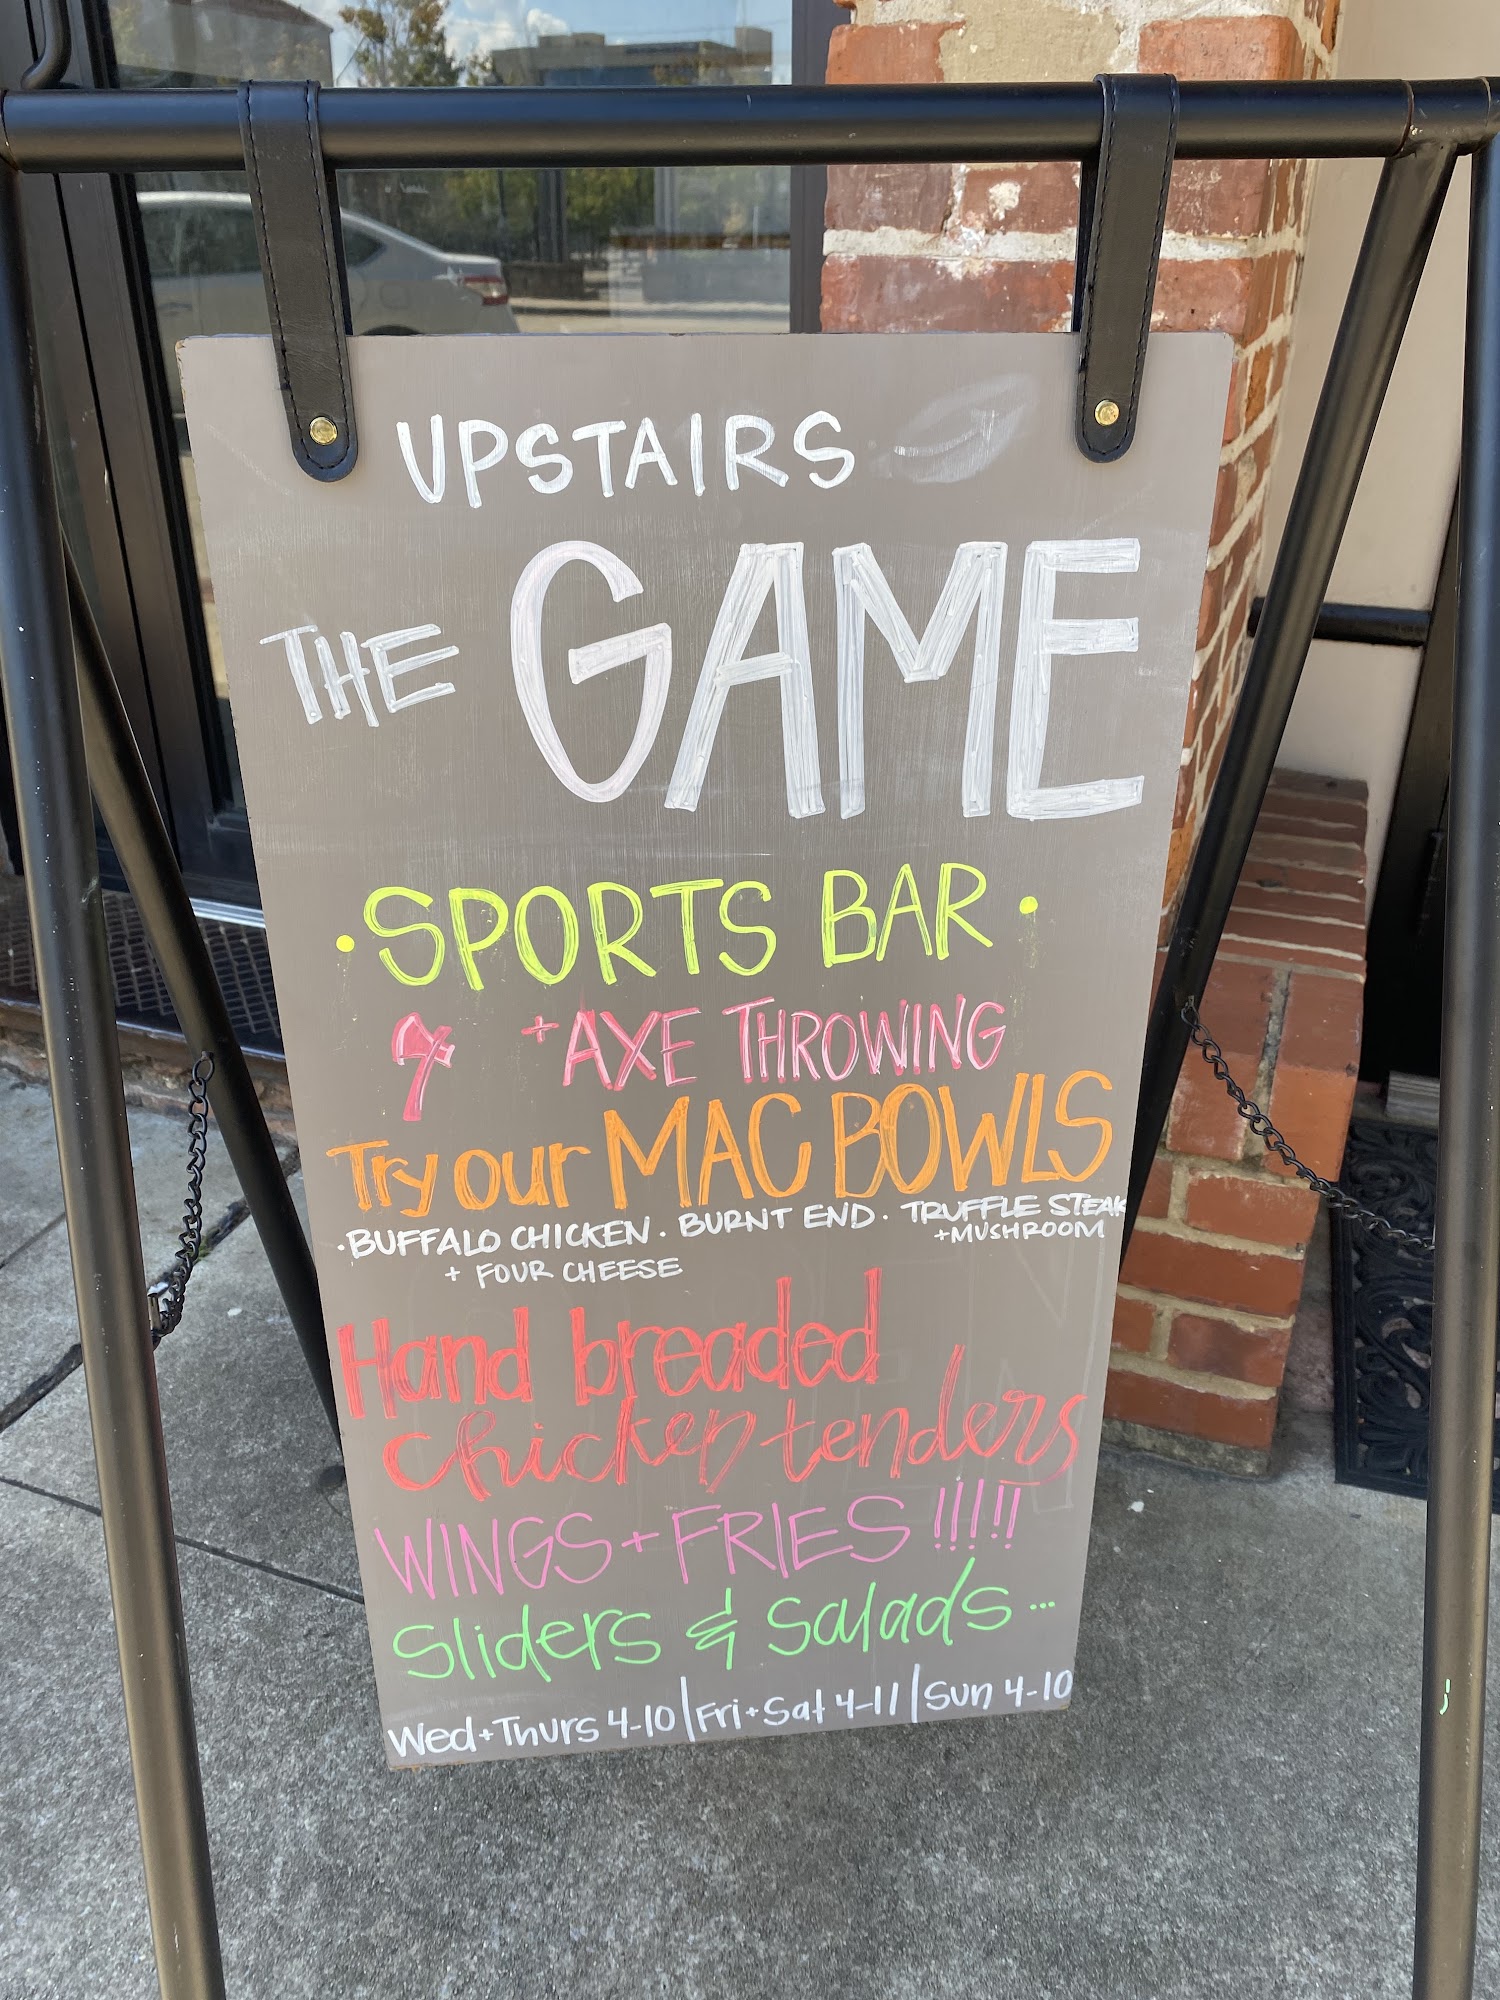 UPSTAIRS
THE GAME
·SPORTS BAR·
+AXE THROWING
Try our MAC BOWLS
·BUFFALO CHICKEN · BURNT END · TRUFFLE STEAK
+MUSHROOM
+ FOUR CHEESE
Hand breaded
chicken tenders
WINGS + FRIES !!!!!
Sliders & Salads...
Wed+Thurs 4-10|Fri+Sat 4-11|Sun 4-10